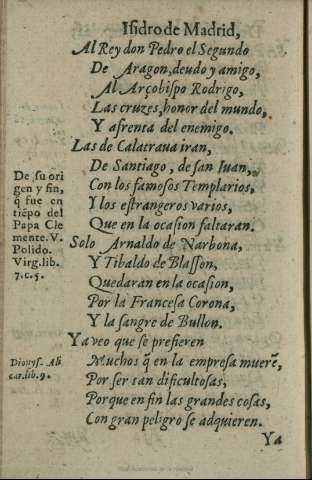 Isidro de Madrid,
Al Rey don Pedro el Segundo
De Aragon, deudo y amigo,
Al Arçobispo Rodrigo,
Las cruzes, honor del mundo,
Y afrenta del enemigo.
Las de Calatraua iran,
De Santiago, de san Iuan,
Con los famosos Templarios,
Y los estrangeros varios,
Que en la ocasion faltaran.
Solo Arnaldo de Narbona,
Y Tibaldo de Blasson,
Quedaran en la ocasion,
Por la Francesa Corona,
Y la sangre de Bullon.
Ya veo que se prefieren
Muchos q̃ en la empresa muerẽ,
Por ser tan dificultosas,
Porque en fin las grandes cosas,
Con gran peligro se adquieren.
Ya
De su ori
gen y fin,
q̃ fue en
tiẽpo del
Papa Cle
mente. V.
Polido.
Virg. lib.
7. c. 5.
Dionys. Ali
car. lib. 9.